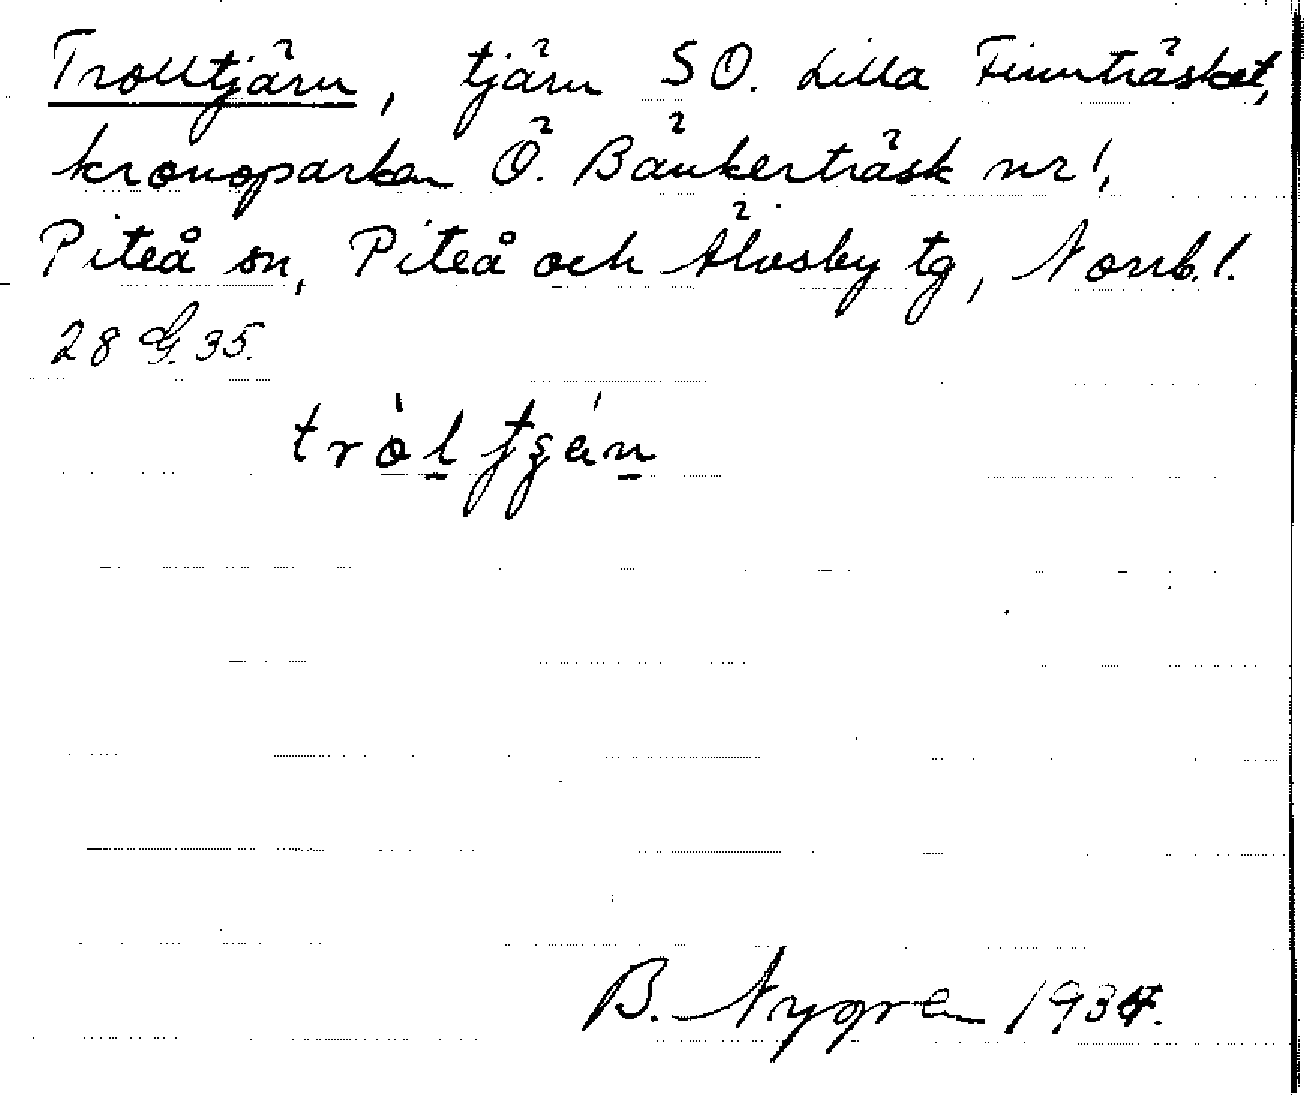 Trolltjärn, tjärn SO. Lilla Finnträsket,
kronoparken Ö. Bänkerträsk nr 1,
Piteå sn, Piteå och Älvsby tg, Norrb. l.
28 G. 35.
B. Nygren 1934.